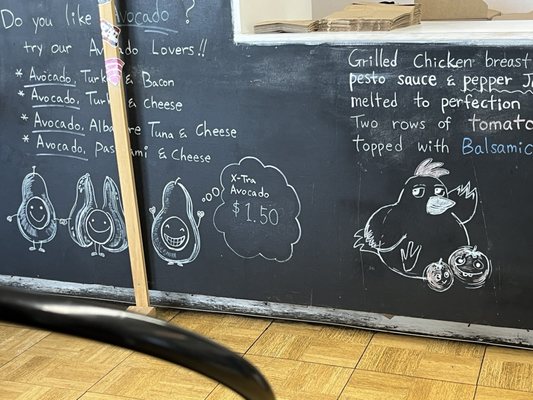 Do you like Avocado ?
try our Avocado Lovers!!
* Avocado, Turkey & Bacon
* Avocado, Turkey & Cheese
* Avocado, Albacore Tuna & Cheese
* Avocado, Pastrami & Cheese
X-Tra
Avocado
$1.50
Grilled Chicken breast
pesto sauce & pepper J
melted to perfection
Two rows of tomato
topped with Balsamic